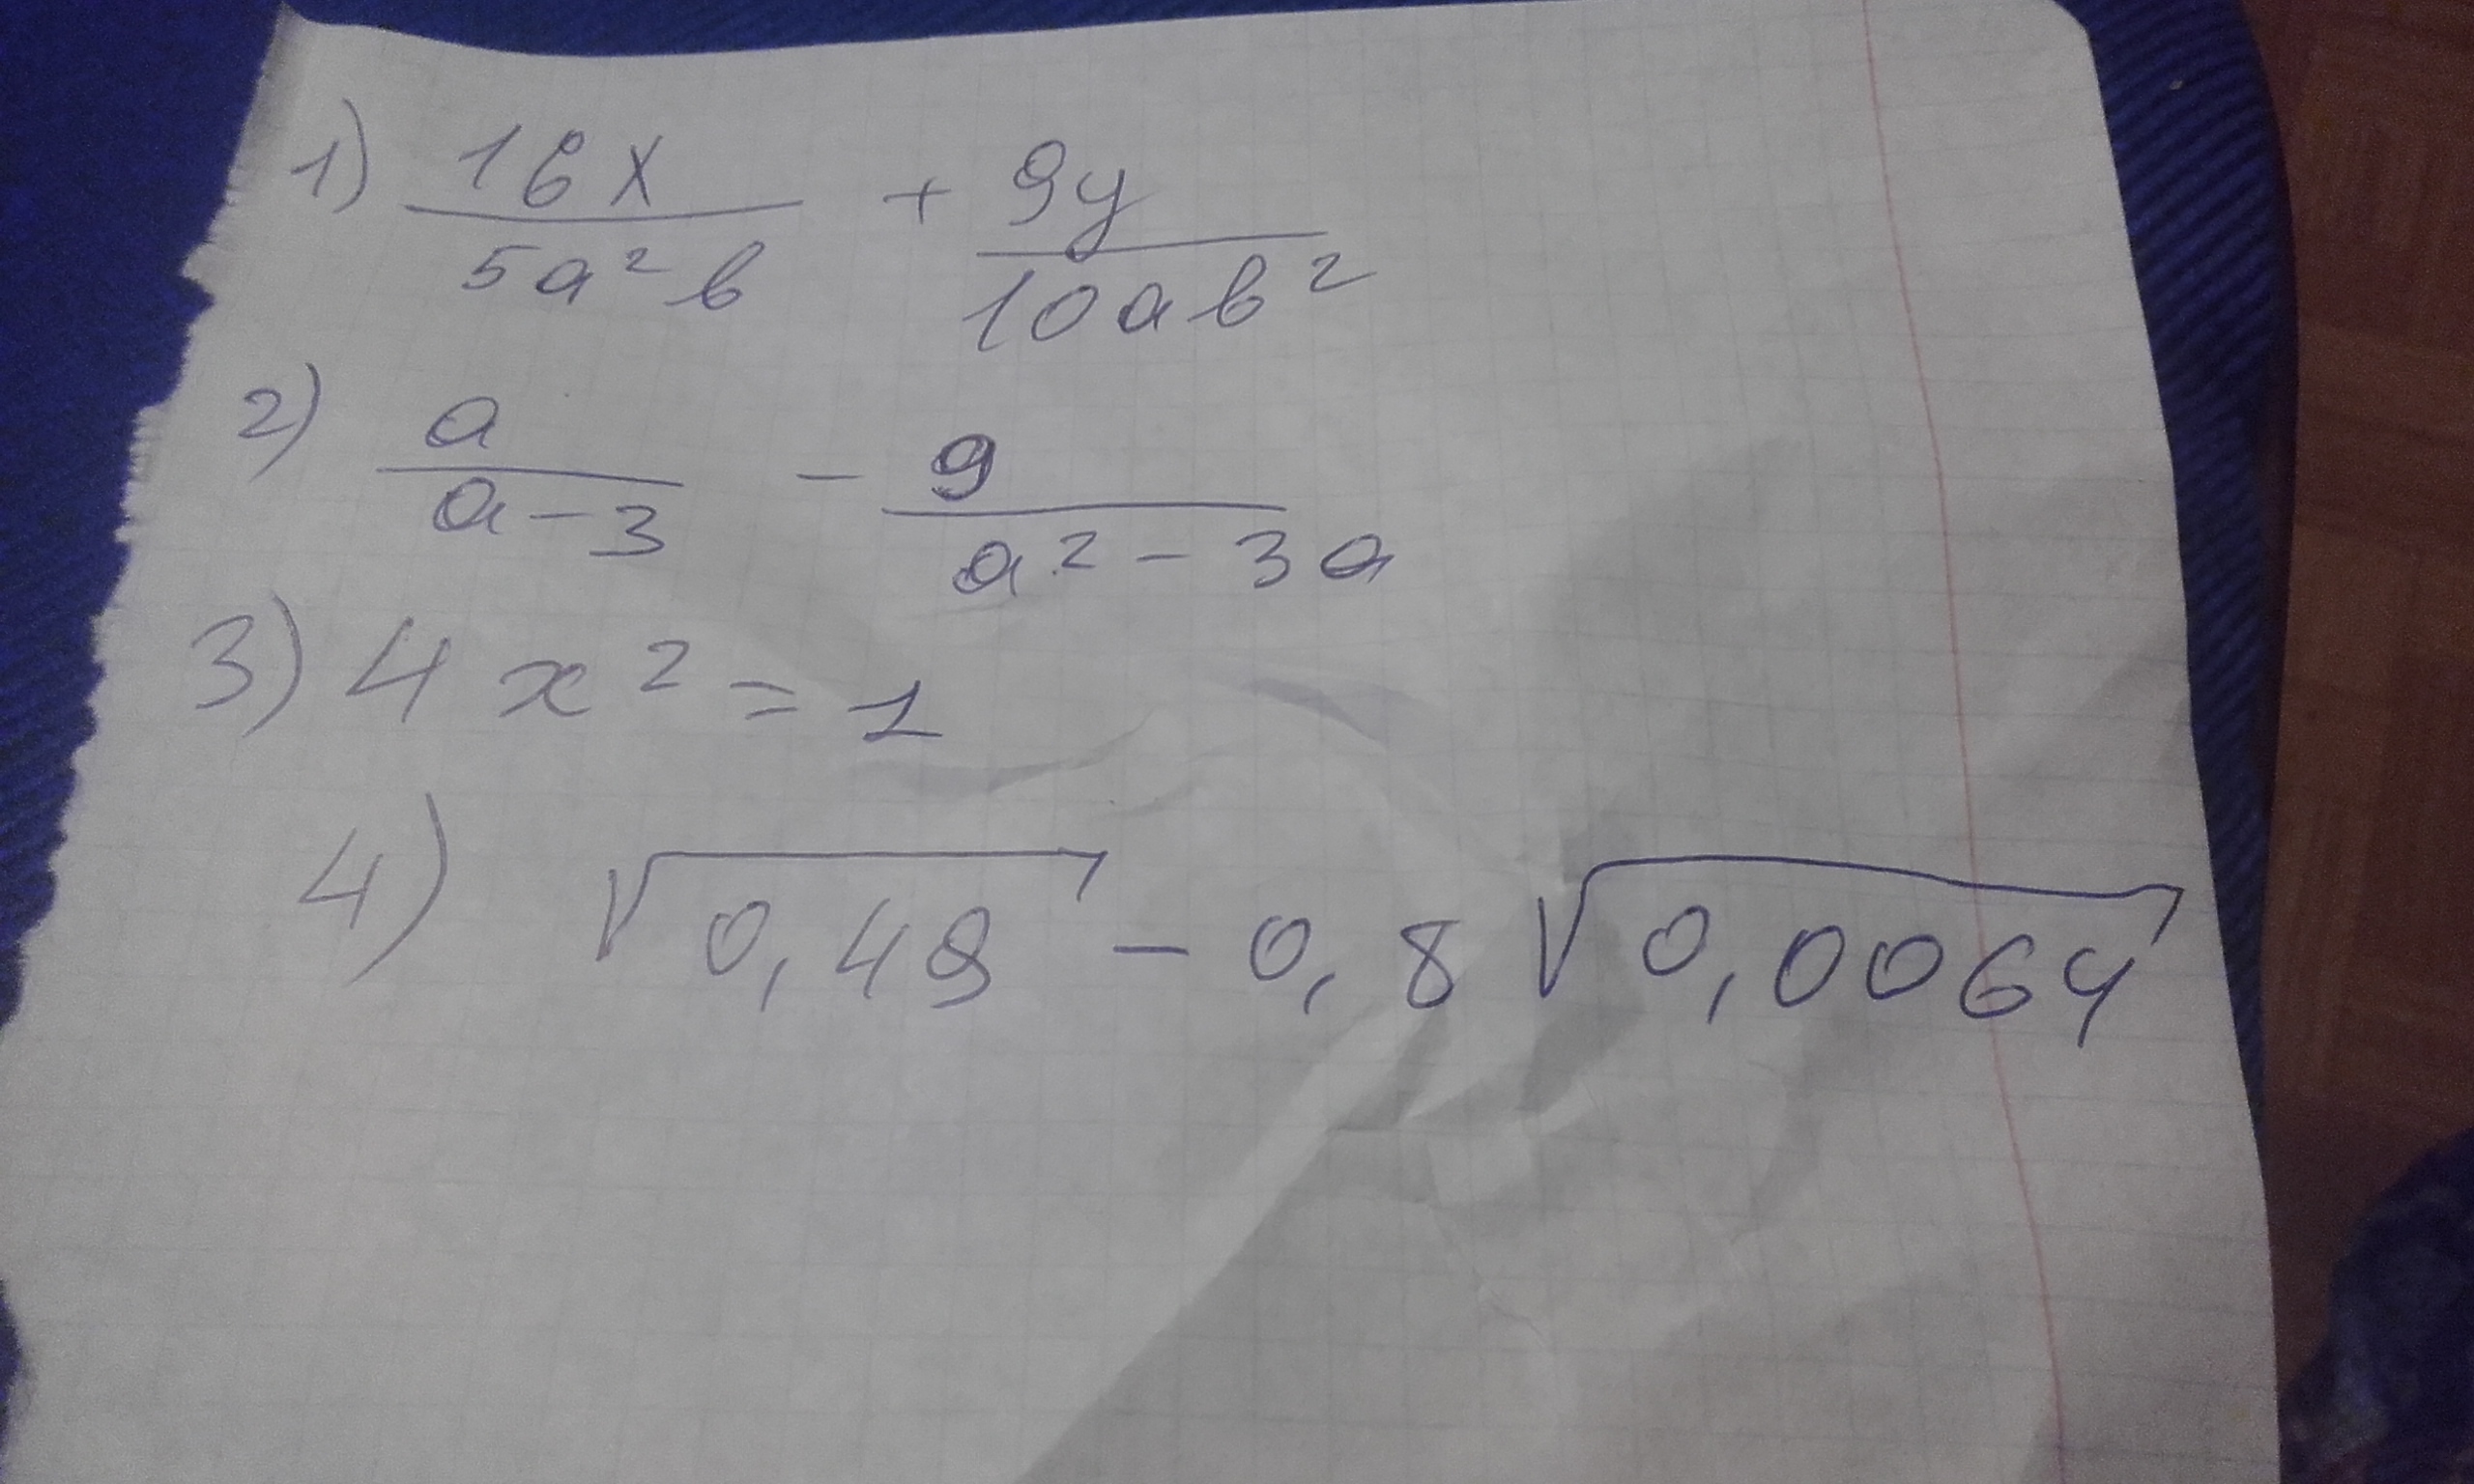 1) 16x/5a²b + 9y/10ab²
2) a/a-3 - 9/a²-3a
3) 4x² = 1
4) √0,49 - 0,8√0,0064